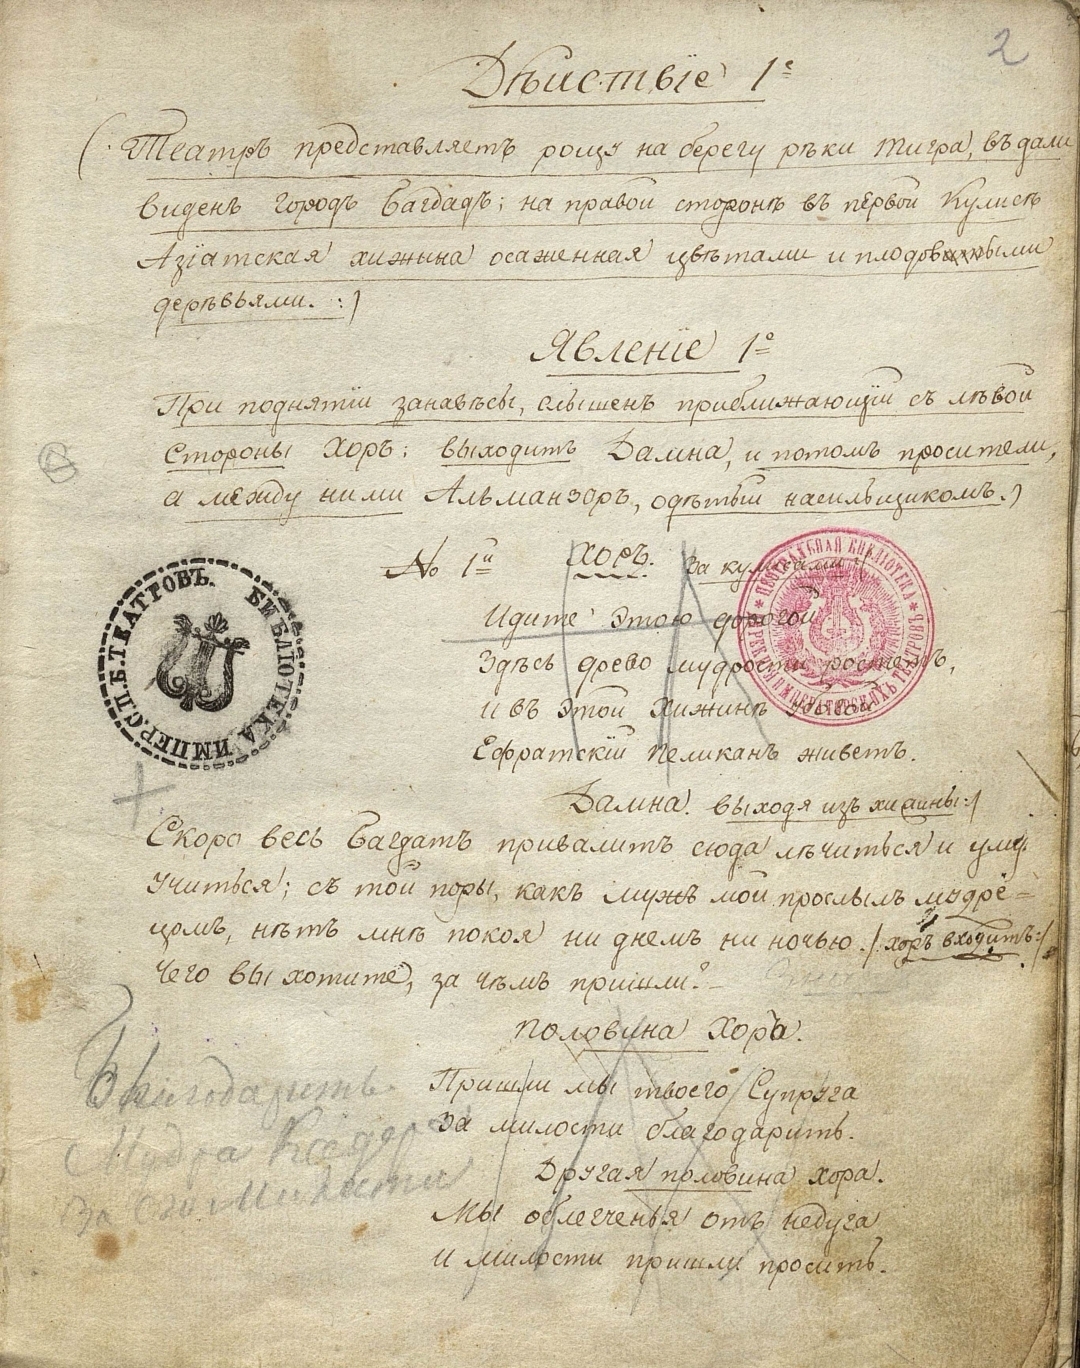 2
Дѣйствіе 1е
(: Театръ представляетъ рощу на берегу рѣки Тигра, въ дали
виденъ городъ Багдадъ; на правой сторонѣ въ первой Кулисѣ
Азіатская хижина осаженная цвѣтами и плодовыми
дерѣвьями. :)
Явленіе 1е
При поднятіи занавѣсы, слышенъ приближающійся съ лѣвой
Стороны Хоръ; выходитъ Дамна, и потомъ просители,
а между ними Альманзоръ, одѣтый насильщикомъ.)
№ 1й Хоръ. За кулисами:)
Идите Этою дорогой
Здѣсь древо мудрости ростетъ,
И въ Этой Хижинѣ убогой
Ефратскій Пеликанъ живетъ.
БИБЛІОТЕКА ИМПЕР. С.П.Б. ТЕАТРОВЪ.
ЦЕНТРАЛЬНАЯ БИБЛІОТЕКА
Дамна. выходя изъ хижины:)
Скоро весь Багдатъ привалитъ сюда лѣчиться и уму
учиться; съ той поры, какъ мужъ мой прослылъ мудре=
цомъ, нѣтъ мнѣ покоя ни днемъ ни ночью. (хоръ входитъ:)
Чего вы хотите, за чѣмъ пришли?
Половина Хора.
Пришли мы твоего Супруга
За милости благодарить.
Другая половина хора.
Мы облегченья отъ недуга
И милости пришли просить.
Благодарить
Мудра
За Милости